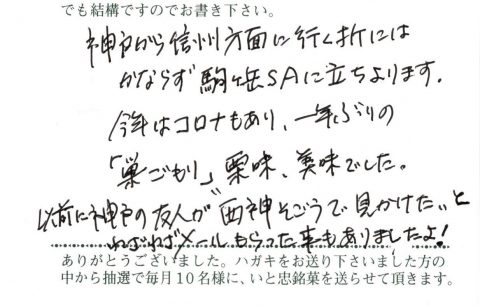 でも結構ですのでお書き下さい。
神戸から信州方面に行く折には
かならず駒ヶ岳SAに立ちよります。
今年はコロナもあり、一年ぶりの
「巣ごもり」栗味、美味でした。
以前に神戸の友人が"西神そごうで見かけた"と
わざわざメールもらった事もありましたよ!
ありがとうございました。ハガキをお送り下さいました方の
中から抽選で毎月10名様に、いと忠銘菓を送らせて頂きます。